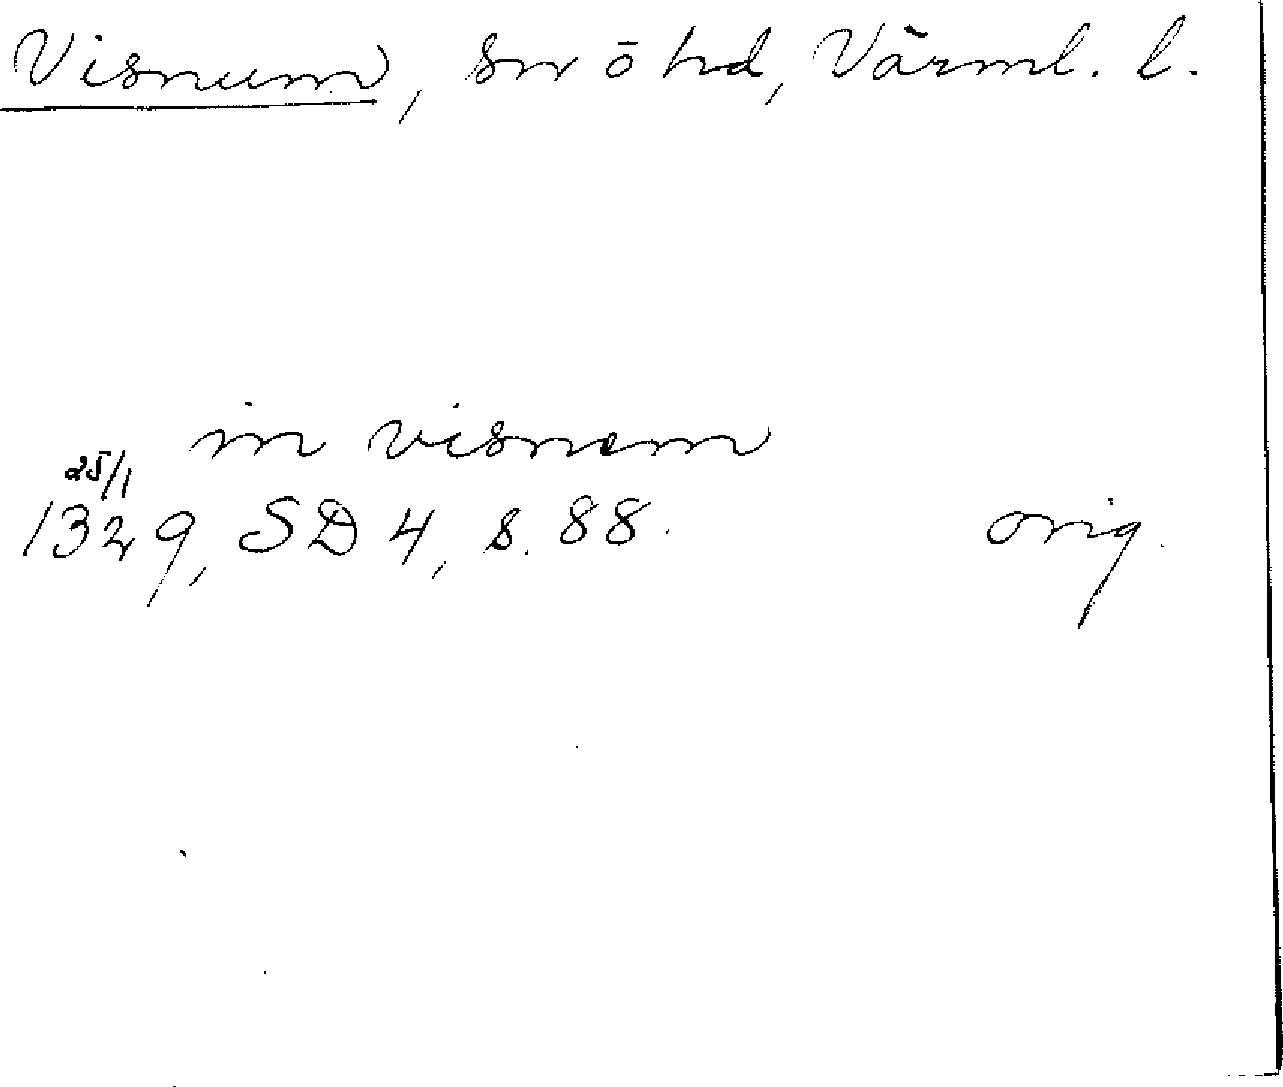 Visnum, sn ö hd, Värml. l.
in visnem
25/1
1329, SD 4, s. 88. orig.